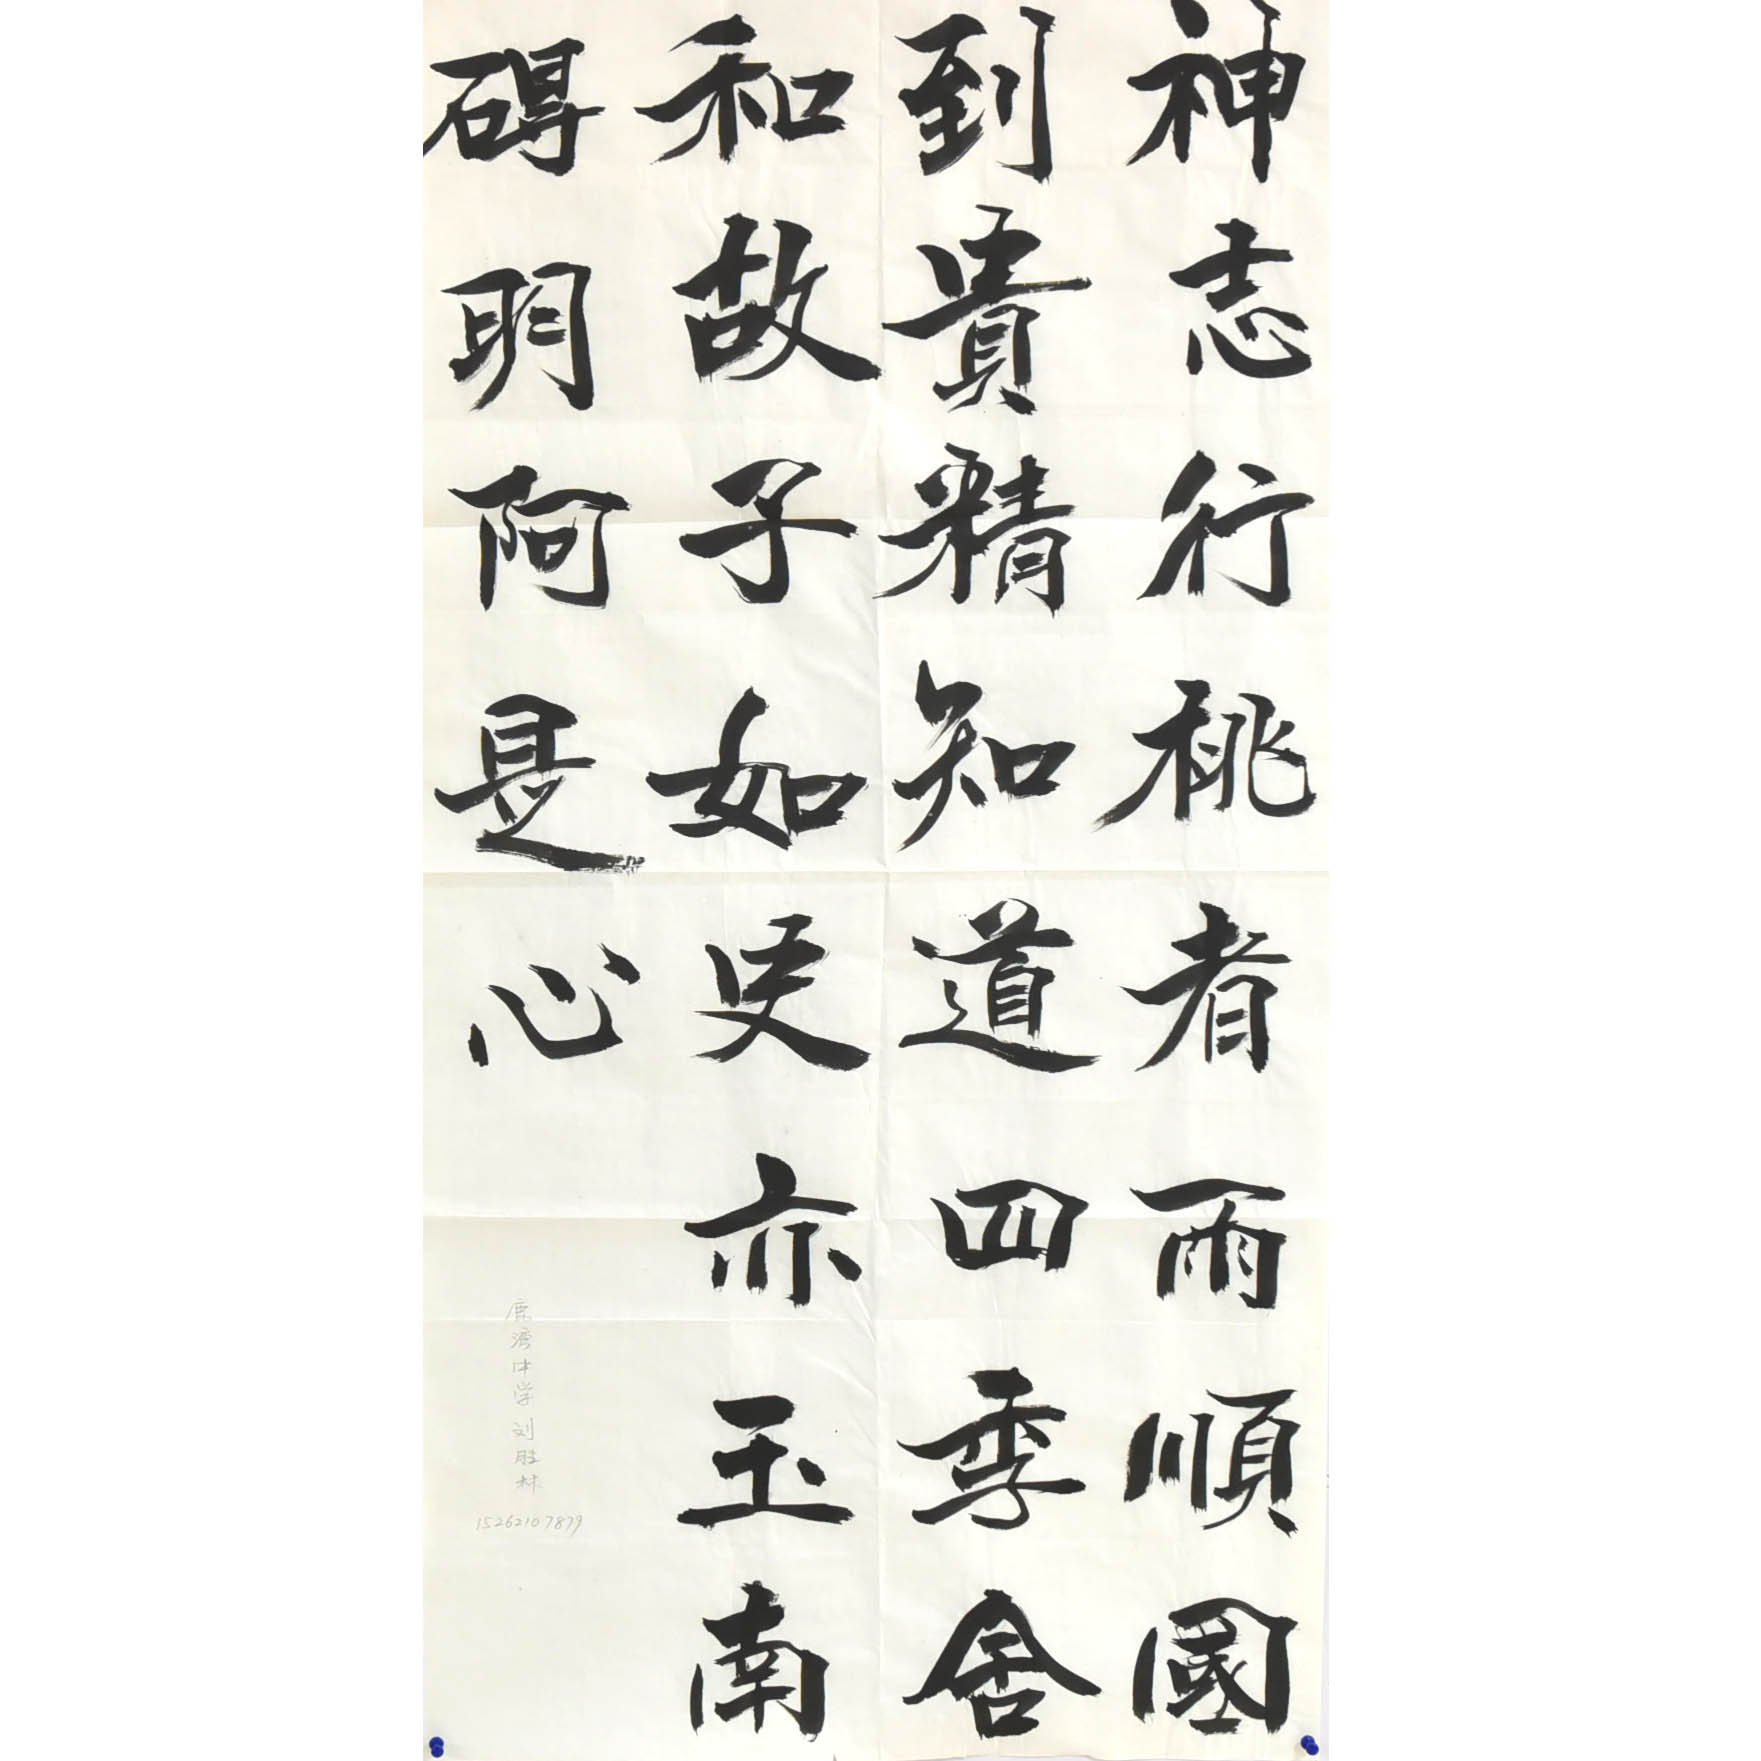 神志行桃者雨順國
到貴精知道四季舍
和故子如史亦玉南
碍明阿是心
中学刘胜林
15262107879